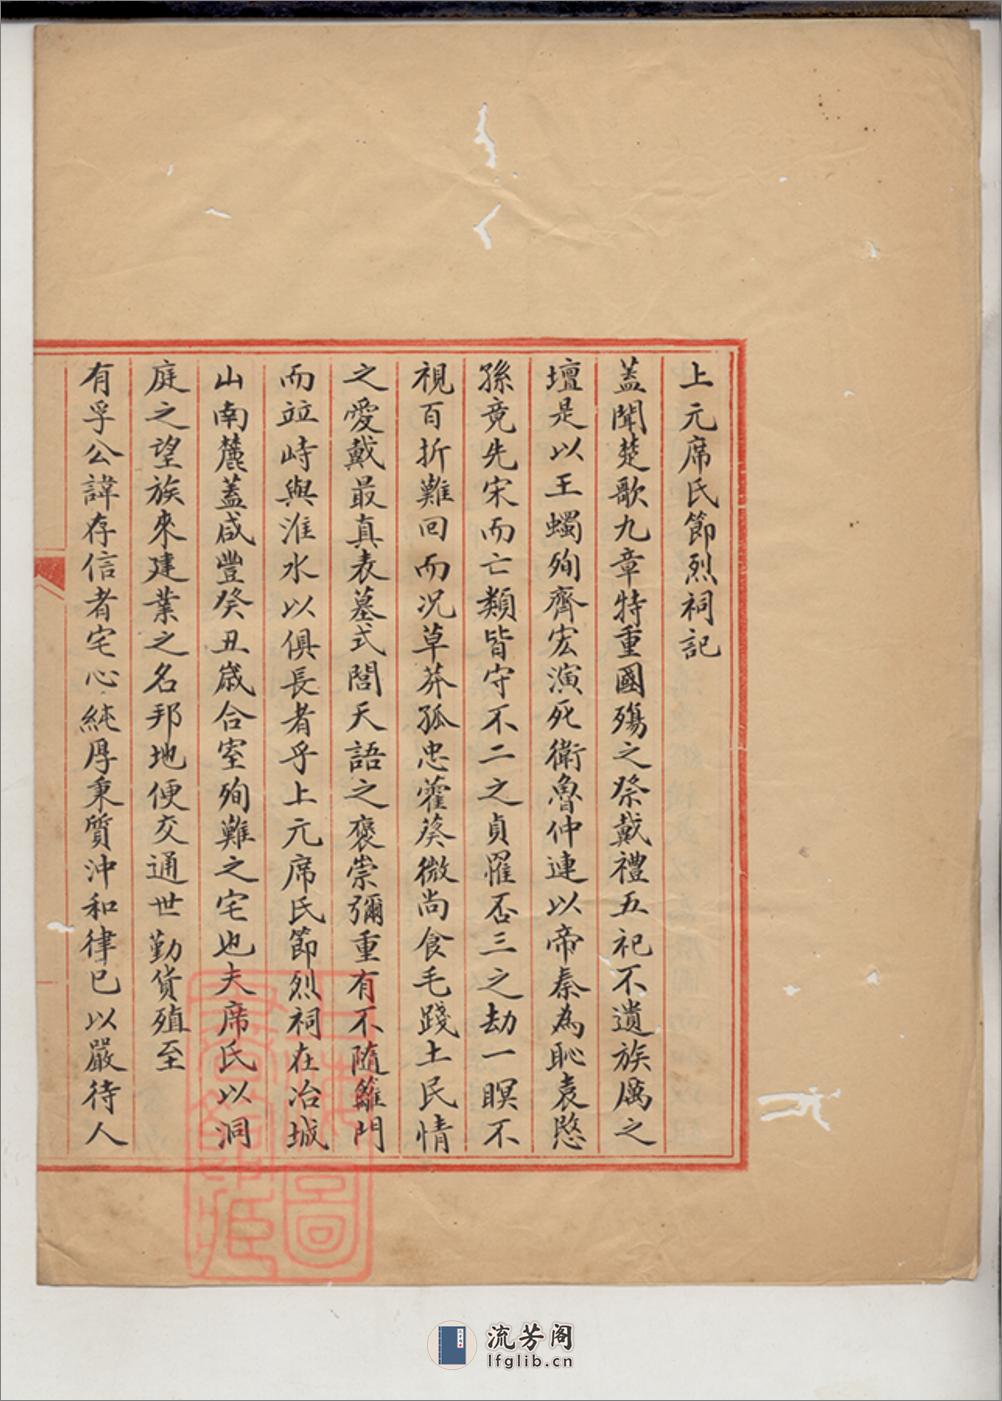 上元席氏節烈祠記
蓋聞楚歌九章特重國殤之祭戴禮五祀不遺族厲之
壇是以王蠋殉齊宏演死衛魯仲連以帝秦為恥袁愍
孫竟先宋而亡類皆守不二之貞罹否三之劫一瞑不
視百折難回而況草莽孤忠藿葵微尚食毛踐土民情
之愛戴最真表墓式閭天語之褒崇彌重有不隨雒門
而竝峙與淮水以俱長者乎上元席氏節烈祠在冶城
山南麓蓋咸豐癸丑歲合室殉難之宅也夫席氏以洞
庭之望族來建業之名邦地便交通世勤貨殖至
有孚公諱存信者宅心純厚秉質沖和律已以嚴待人
流芳阁
lfglib.cn